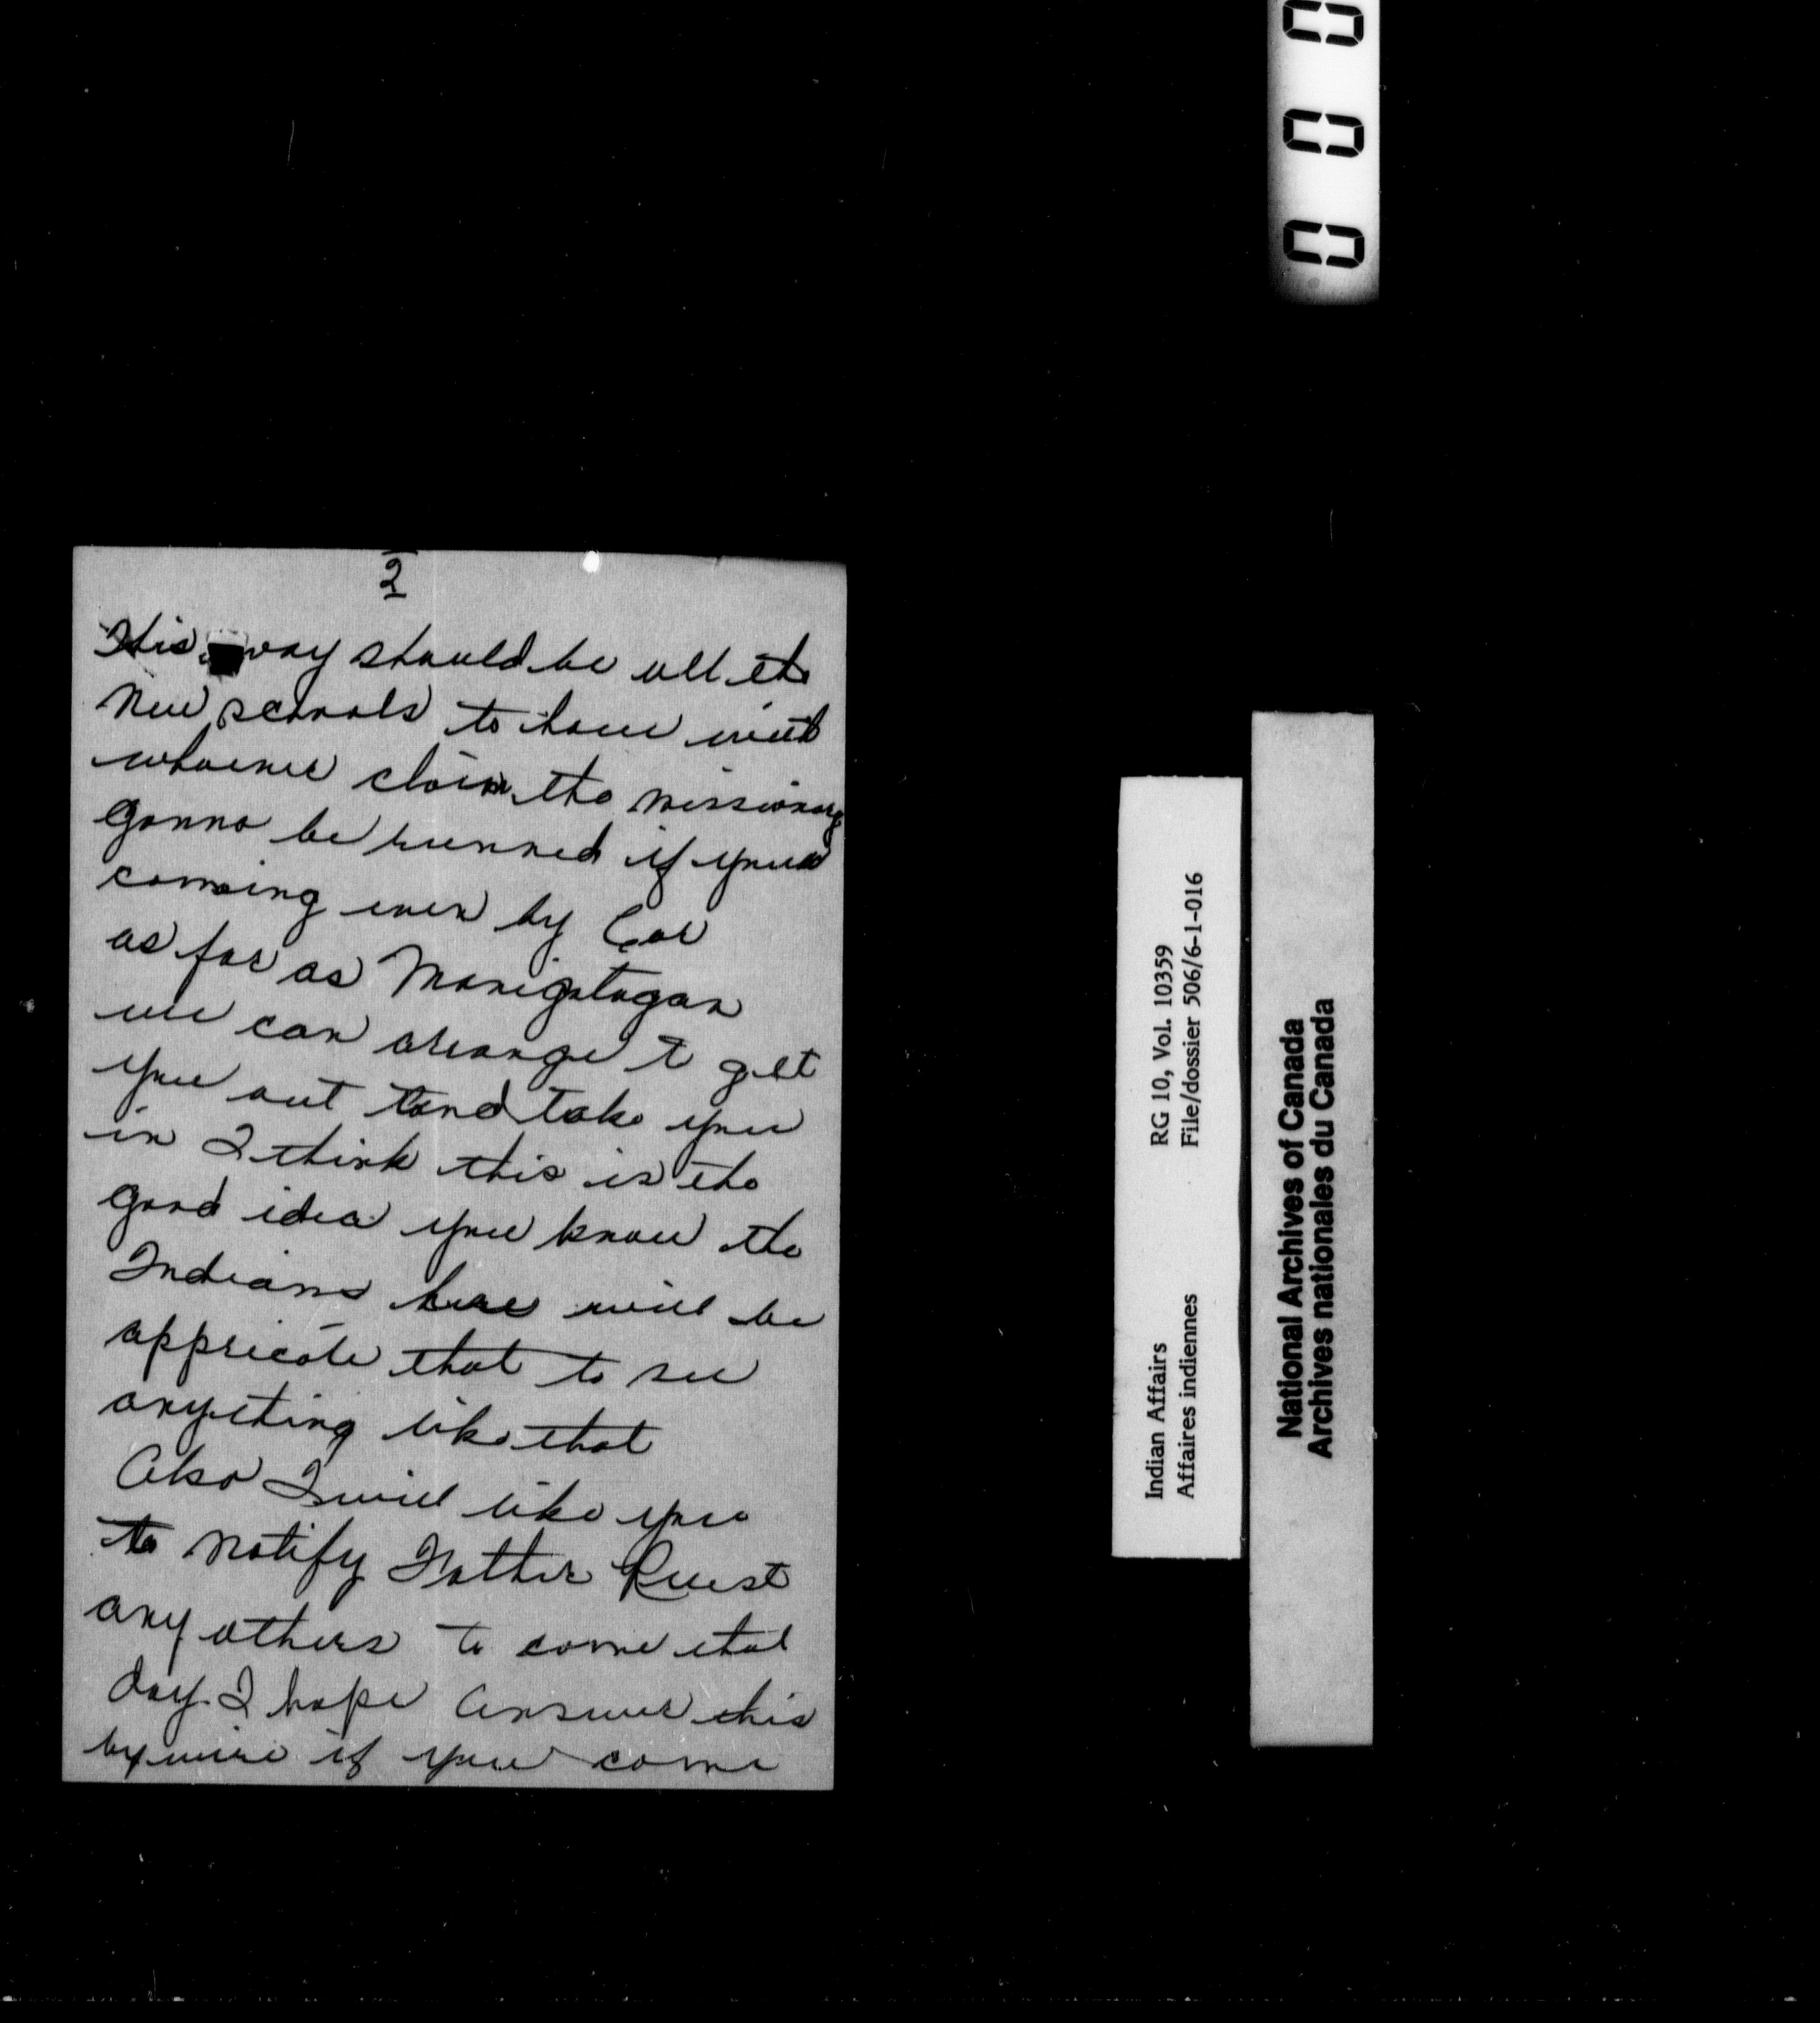 2
This way should be all the
New schools to have with
whoever claim the missionary
gonna be runned if your
comeing even by Car
as far as Manigotogan
we can arange t get
you out and take you
in I think this is the
good idea you know the
Indians here will be
appricate that to see
anything like that
Also I will like you
to notify Father Ruest
any others to come that
day. I hope answer this
by wire if you come
0 0 0
Indian Affairs RG 10, Vol. 10359
Affaires indiennes File/dossier 506/6-1-016
National Archives of Canada
Archives nationales du Canada